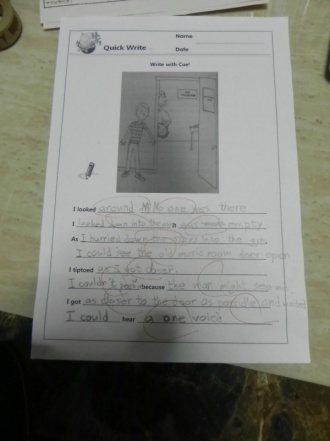 Name
Quick Write
Date
Write with Cue!
I looked around No one was there
I looked down into the was empty.
As I hurried down into the
I could see the old music room door open
I tiptoed as I got closer.
I couldn't because the man might see me.
I got as closer to the door as possible and
I could hear a one voice